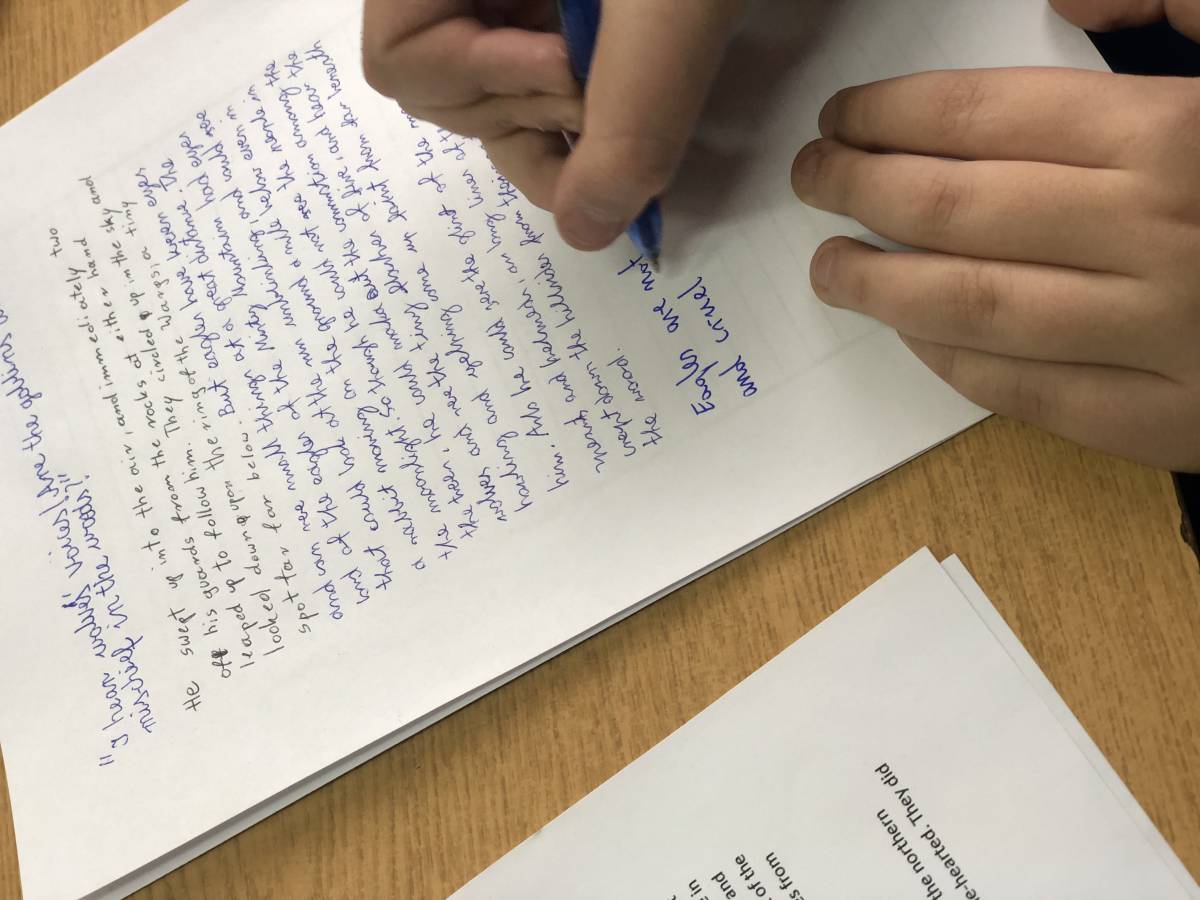 "I hear wolves' voices! Are the goblins
mischief in the woods?"
He swept up into the air, and immediately two
of his guards from the rocks at either hand
leaped up to follow him. They circled up in the sky and
looked down upon the ring of the Wargs, a tiny
spot far far below. But eagles have keen eyes
and can see small things at a great distance. The
lord of the eagles of the Misty Mountains had eyes
that could look at the sun unblinking, and could see
a rabbit moving on the ground a mile below even in
the moonlight. So though he could not see the people in
the trees, he could make out the commotion among the
wolves and see the tiny flashes of fire, and hear the
howling and yelping come up faint from far beneath
him. Also he could see the glint of the m
spears and helmets, as long lines of th
crept down the hillsides from their
the wood.
Eagles are not
and cruel
the northern
e-hearted. They did
e in
and
of the
es from